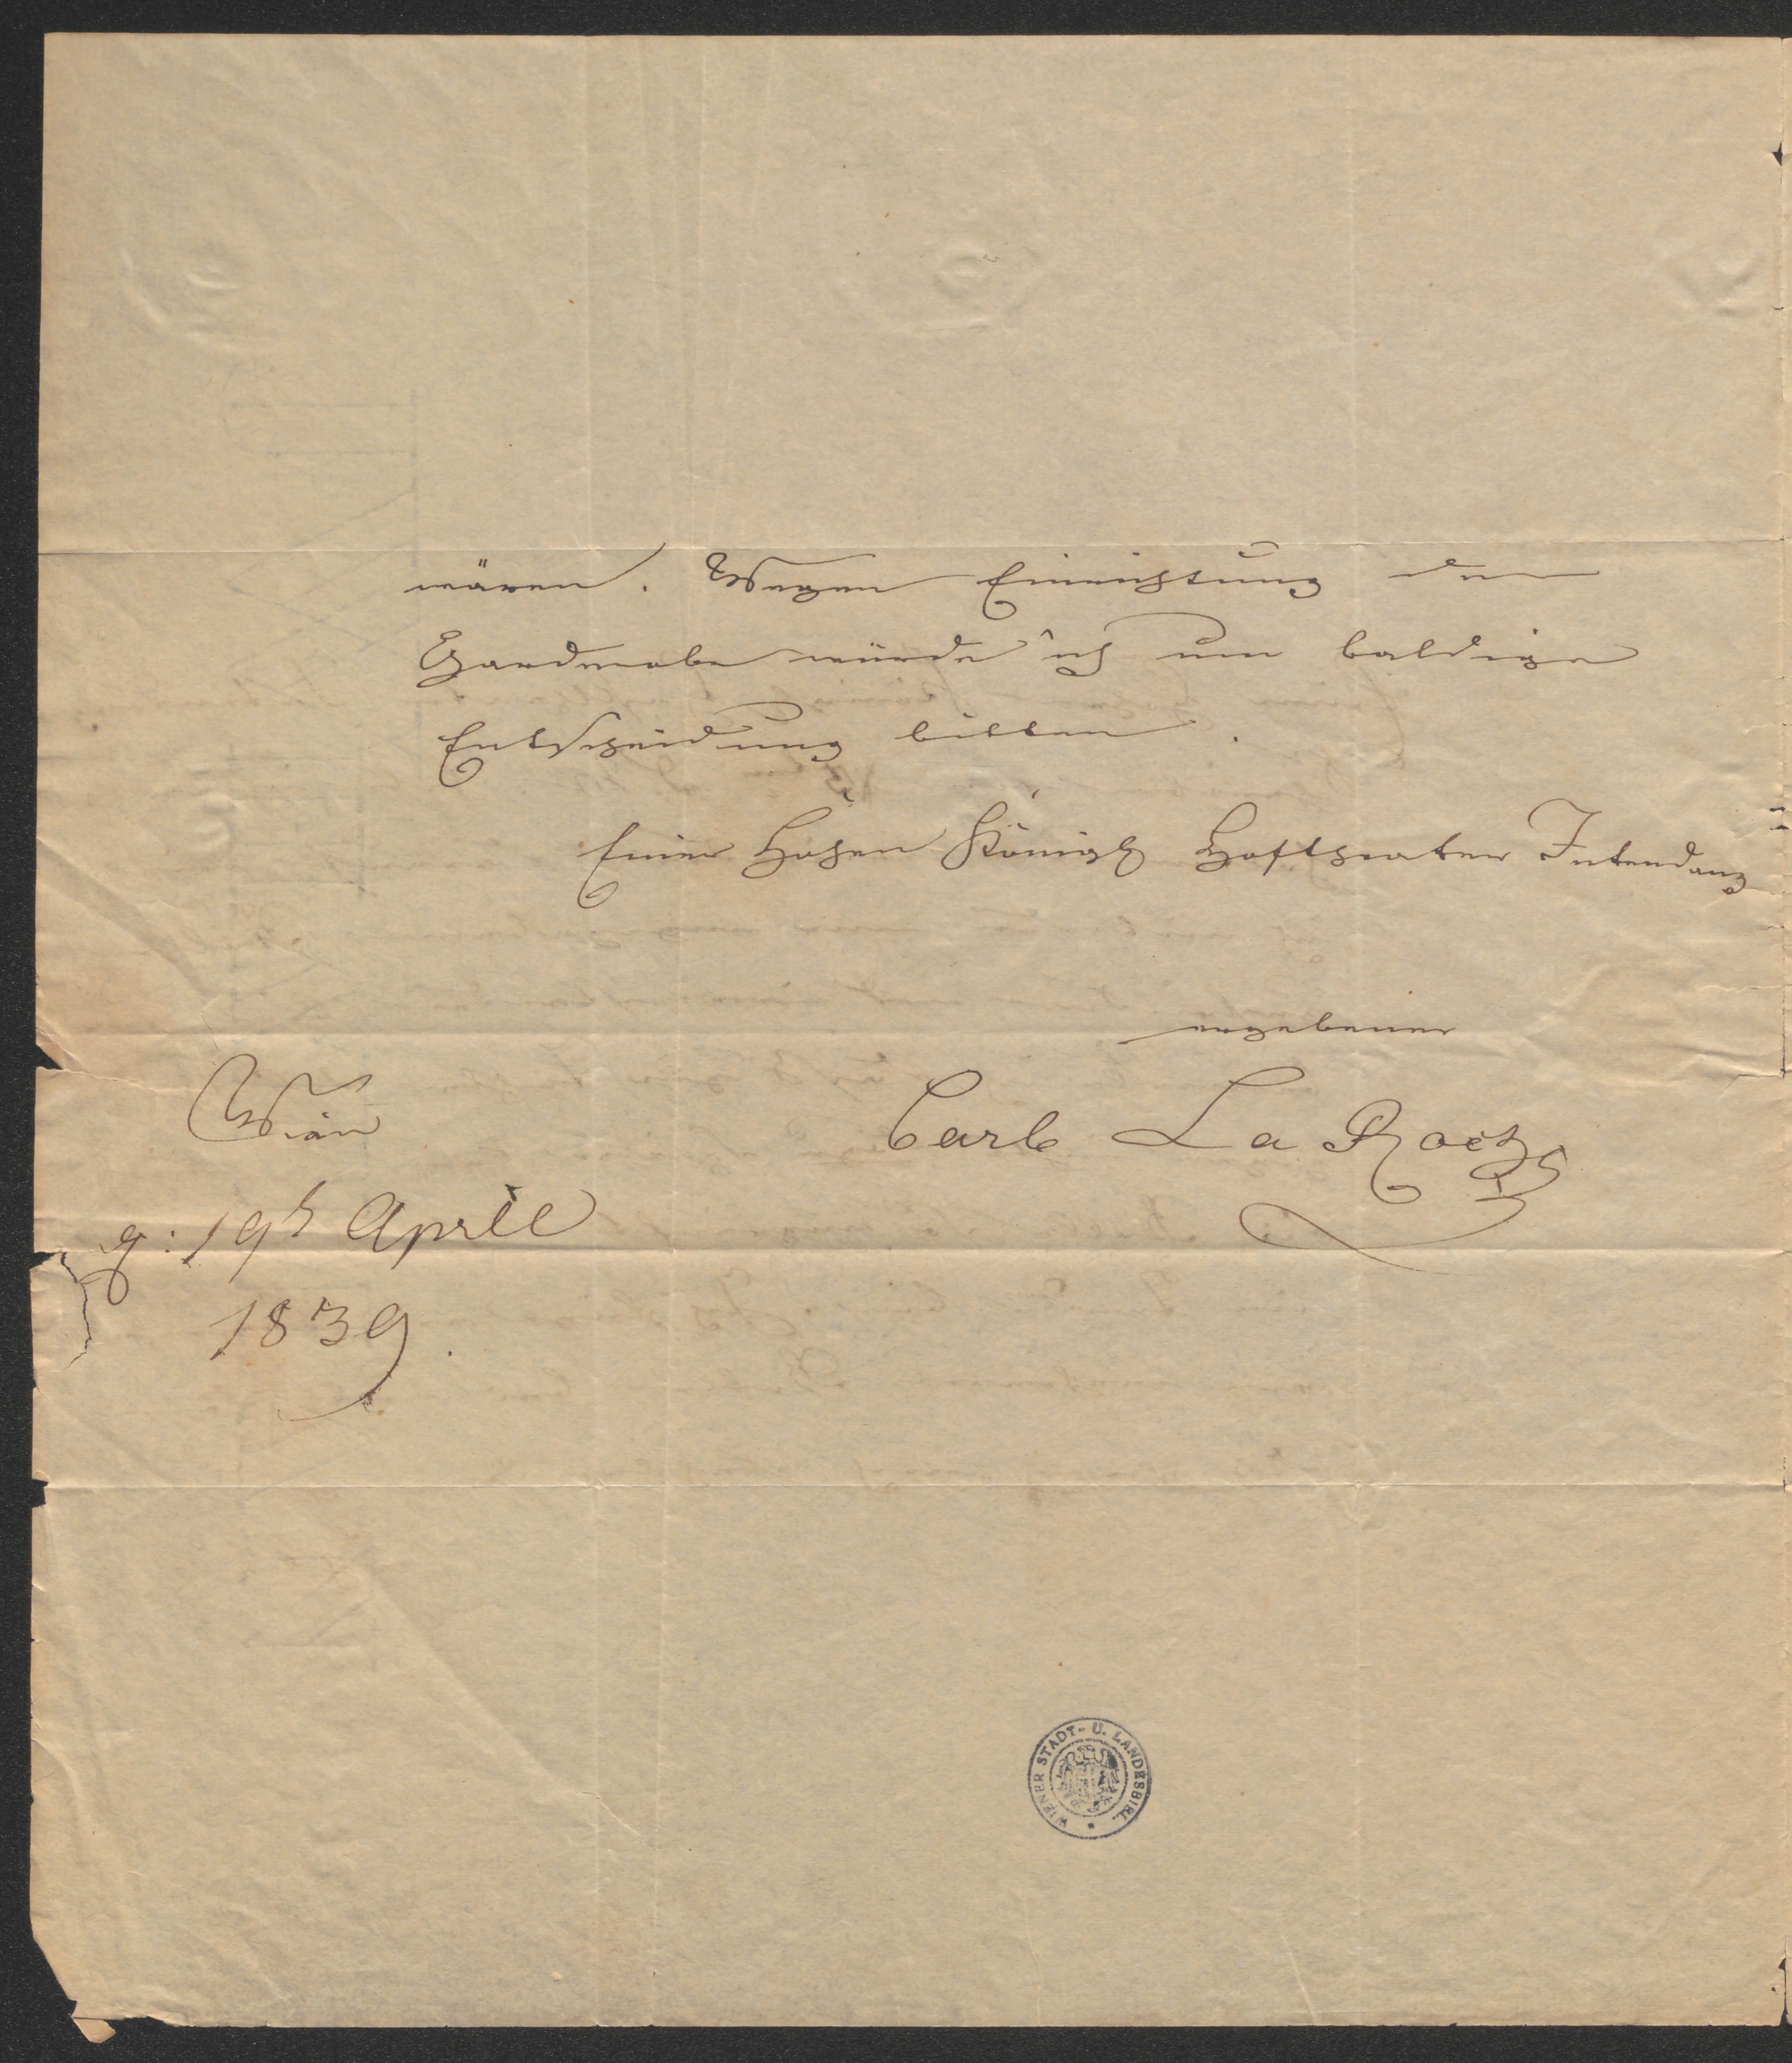 wären. Wegen Einrichtung der
Garderobe würde ich um baldige
Entscheidung bitten.
Einer Hohen Königl Hoftheater Intendanz
ergebener
Carl La Roche
Wien
19t April
1839.
WIENER STADT- U. LANDESBIBL.